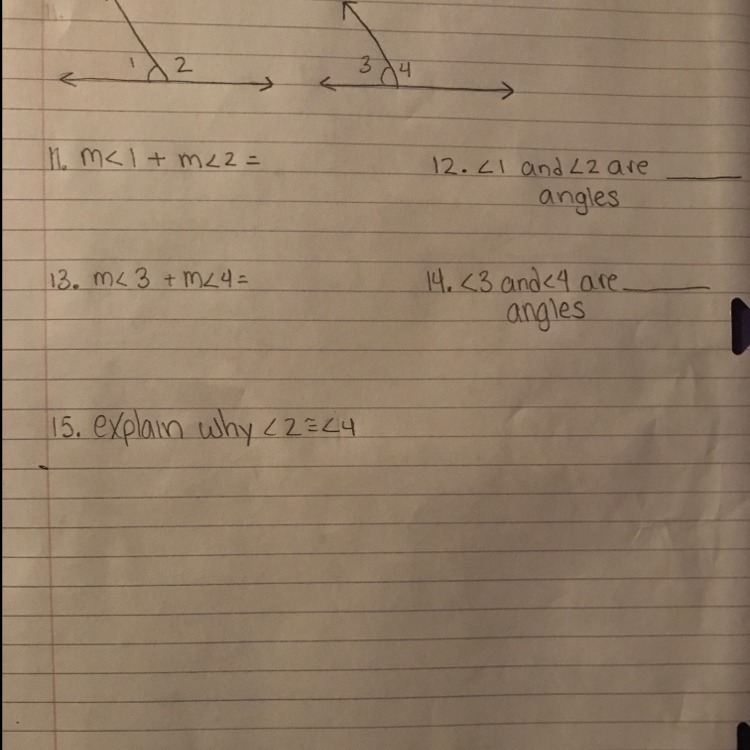 1 2 3 4
11. m<1 + m<2 =
12. <1 and <2 are ______
angles
13. m<3 + m<4 =
14. <3 and <4 are ______
angles
15. explain why <2 ≅ <4